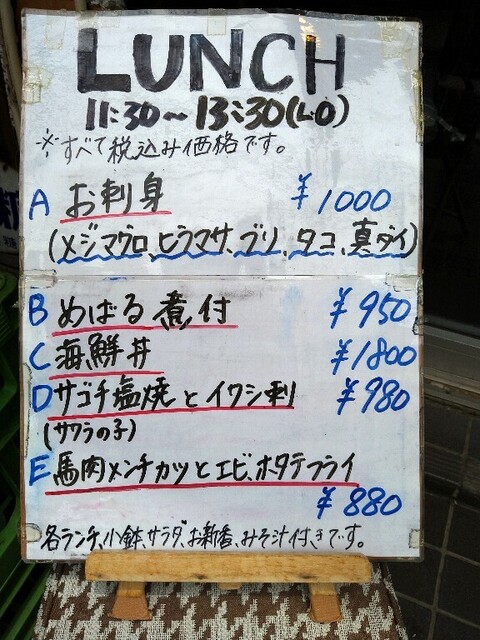 LUNCH
11:30～13:30(LO)
※すべて税込み価格です。
A お刺身 ¥1000
(メジマグロ、ヒラマサ、ブリ、タコ、真ダイ)
B めばる煮付 ¥950
C 海鮮丼 ¥1800
D サゴチ塩焼とイワシ刺 ¥980
(サワラの子)
E 馬肉メンチカツとエビ、ホタテフライ
¥880
各ランチ、小鉢、サラダ、お新香、みそ汁付きです。